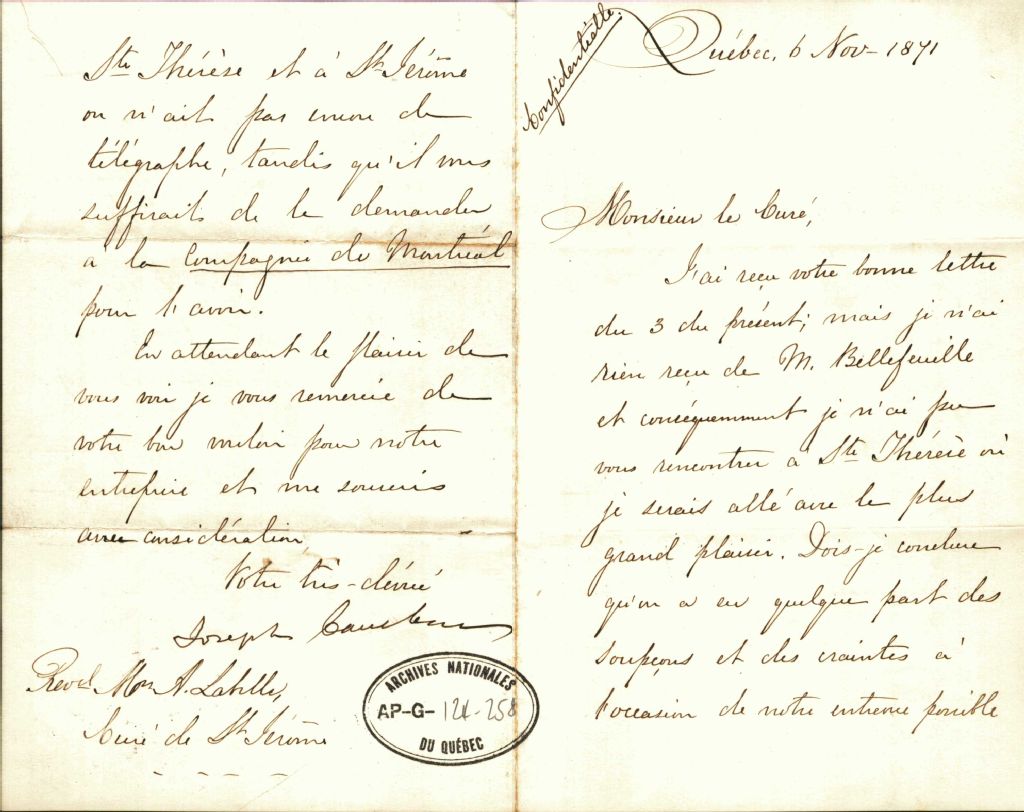 Confidentielle.
Québec, 6 Nov- 1871
Monsieur le Curé,
J'ai reçu votre bonne lettre
du 3 du présent; mais je n'ai
rien reçu de M. Bellefeuille
et conséquemment je n'ai pu
vous rencontrer à Ste Thérèse où
je serais allé avec le plus
grand plaisir. Dois-je conclure
qu'on a eu quelque part des
soupçons et des craintes à
l'occasion de notre entrevue possible
Ste Thérèse et à St Jérôme
on n'ait pas encore de
télégraphe, tandis qu'il vous
suffirait de le demander
à la Compagnie de Montréal
pour l'avoir.
En attendant le plaisir de
vous voir je vous remercie de
votre bon vouloir pour notre
entreprise et me souscris
avec considération
Votre très-dévoué
Joseph Cauchon
Revd. Mr A. Labelle,
Curé de St Jérôme
ARCHIVES NATIONALES
AP-G-124-258
DU QUÉBEC